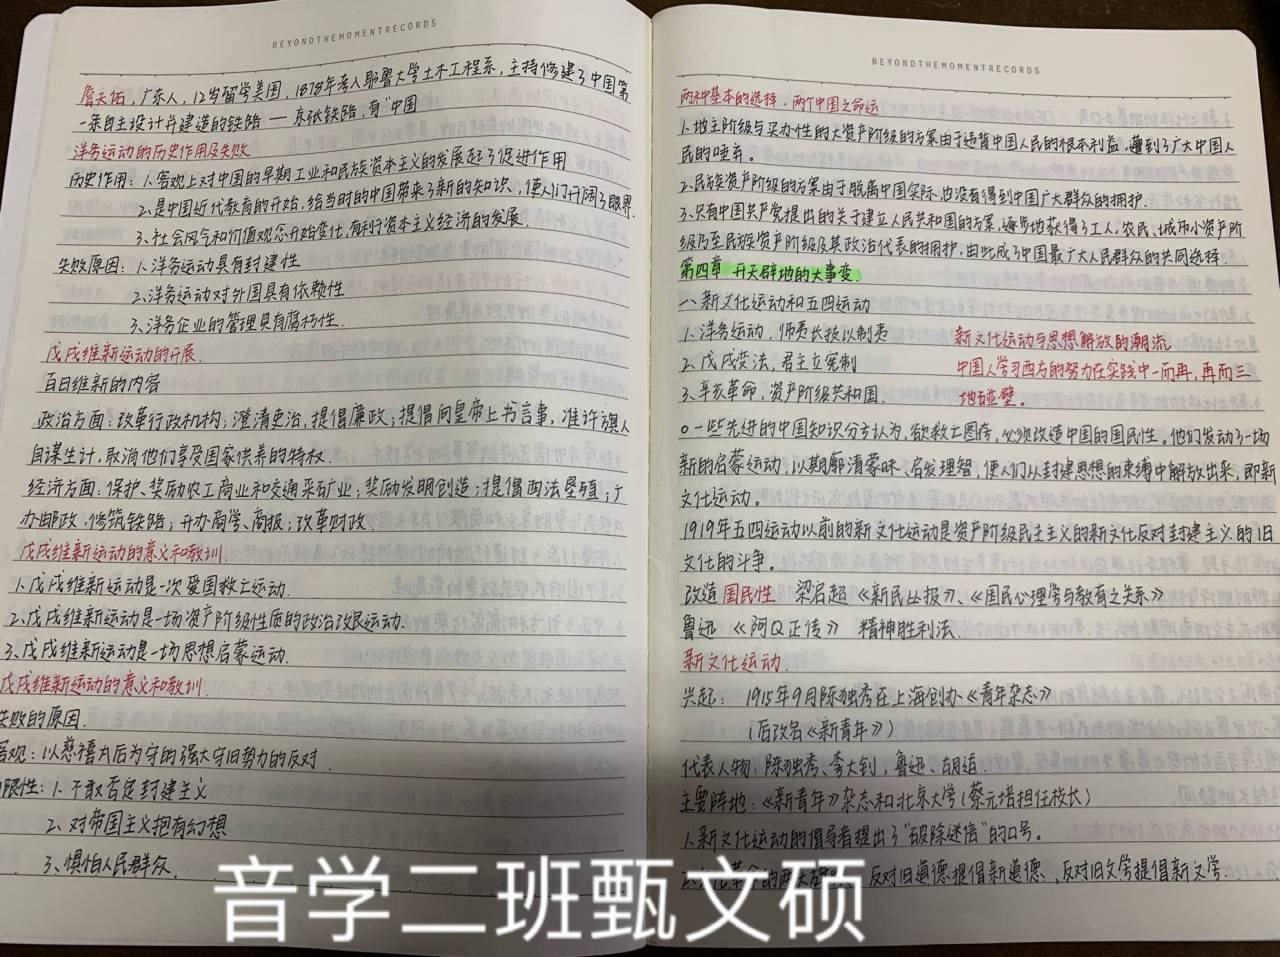 BEYONDTHEMOMENTRECORDS
詹天佑，广东人，12岁留学美国，1878年考入耶鲁大学土木工程系，主持修建了中国第
一条自主设计并建造的铁路——京张铁路，有"中国
洋务运动的历史作用及失败
历史作用：1.客观上对中国的早期工业和民族资本主义的发展起了促进作用
2.是中国近代教育的开始，给当时的中国带来了新的知识，使人们开阔了眼界.
3.社会风气和价值观念开始变化，有利于资本主义经济的发展.
失败原因：1.洋务运动具有封建性
2.洋务运动对外国具有依赖性
3.洋务企业的管理具有腐朽性.
戊戌维新运动的开展.
百日维新的内容
政治方面：改革行政机构；澄清吏治，提倡廉政；提倡向皇帝上书言事，准许旗人
自谋生计，取消他们享受国家供养的特权.
经济方面：保护、奖励农工商业和交通采矿业；奖励发明创造；提倡西法垦殖；
办邮政，修筑铁路；开办商学、商报；改革财政
戊戌维新运动的意义和教训.
1.戊戌维新运动是一次爱国救亡运动.
2.戊戌维新运动是一场资产阶级性质的政治改良运动.
3.戊戌维新运动是一场思想启蒙运动.
戊戌维新运动的意义和教训.
失败的原因.
客观：以慈禧太后为守的强大守旧势力的反对.
限性：1.不敢否定封建主义
2.对帝国主义抱有幻想
3.惧怕人民群众.
BEYONDTHEMOMENTRECORDS
两种基本的选择，两个中国之命运
1.地主阶级与买办性的大资产阶级的方案由于违背中国人民的根本利益，遭到了广大中国人
民的唾弃。
2.民族资产阶级的方案由于脱离中国实际，也没有得到中国广大群众的拥护.
3.只有中国共产党提出的关于建立人民共和国的方案，逐步地获得了工人，农民、城市小资产阶
级乃至民族资产阶级及其政治代表的拥护，由此成了中国最广大人民群众的共同选择.
第四章 开天辟地的大事变.
一、新文化运动和五四运动
1.洋务运动，师夷长技以制夷
新文化运动与思想解放的潮流
2.戊戌变法，君主立宪制
中国人学习西方的努力在实践中一而再，再而三
3.辛亥革命，资产阶级共和国.
地碰壁.
○一些先进的中国知识分子认为，欲救亡图存，必须改造中国的国民性，他们发动了一场
新的启蒙运动，以期廓清蒙昧、启发理智，使人们从封建思想的束缚中解放出来，即新
文化运动。
1919年五四运动以前的新文化运动是资产阶级民主主义的新文化反对封建主义的旧
文化的斗争。
改造国民性 梁启超《新民丛报》、《国民心理学与教育之关系》
鲁迅《阿Q正传》 精神胜利法.
新文化运动.
兴起：1915年9月陈独秀在上海创办《青年杂志》
（后改名《新青年》）
代表人物：陈独秀、李大钊，鲁迅、胡适.
主要阵地：《新青年》杂志和北京大学（蔡元培担任校长）
1.新文化运动的倡导者提出了"破除迷信"的口号。
反对旧道德提倡新道德、反对旧文学提倡新文学.
音学二班甄文硕